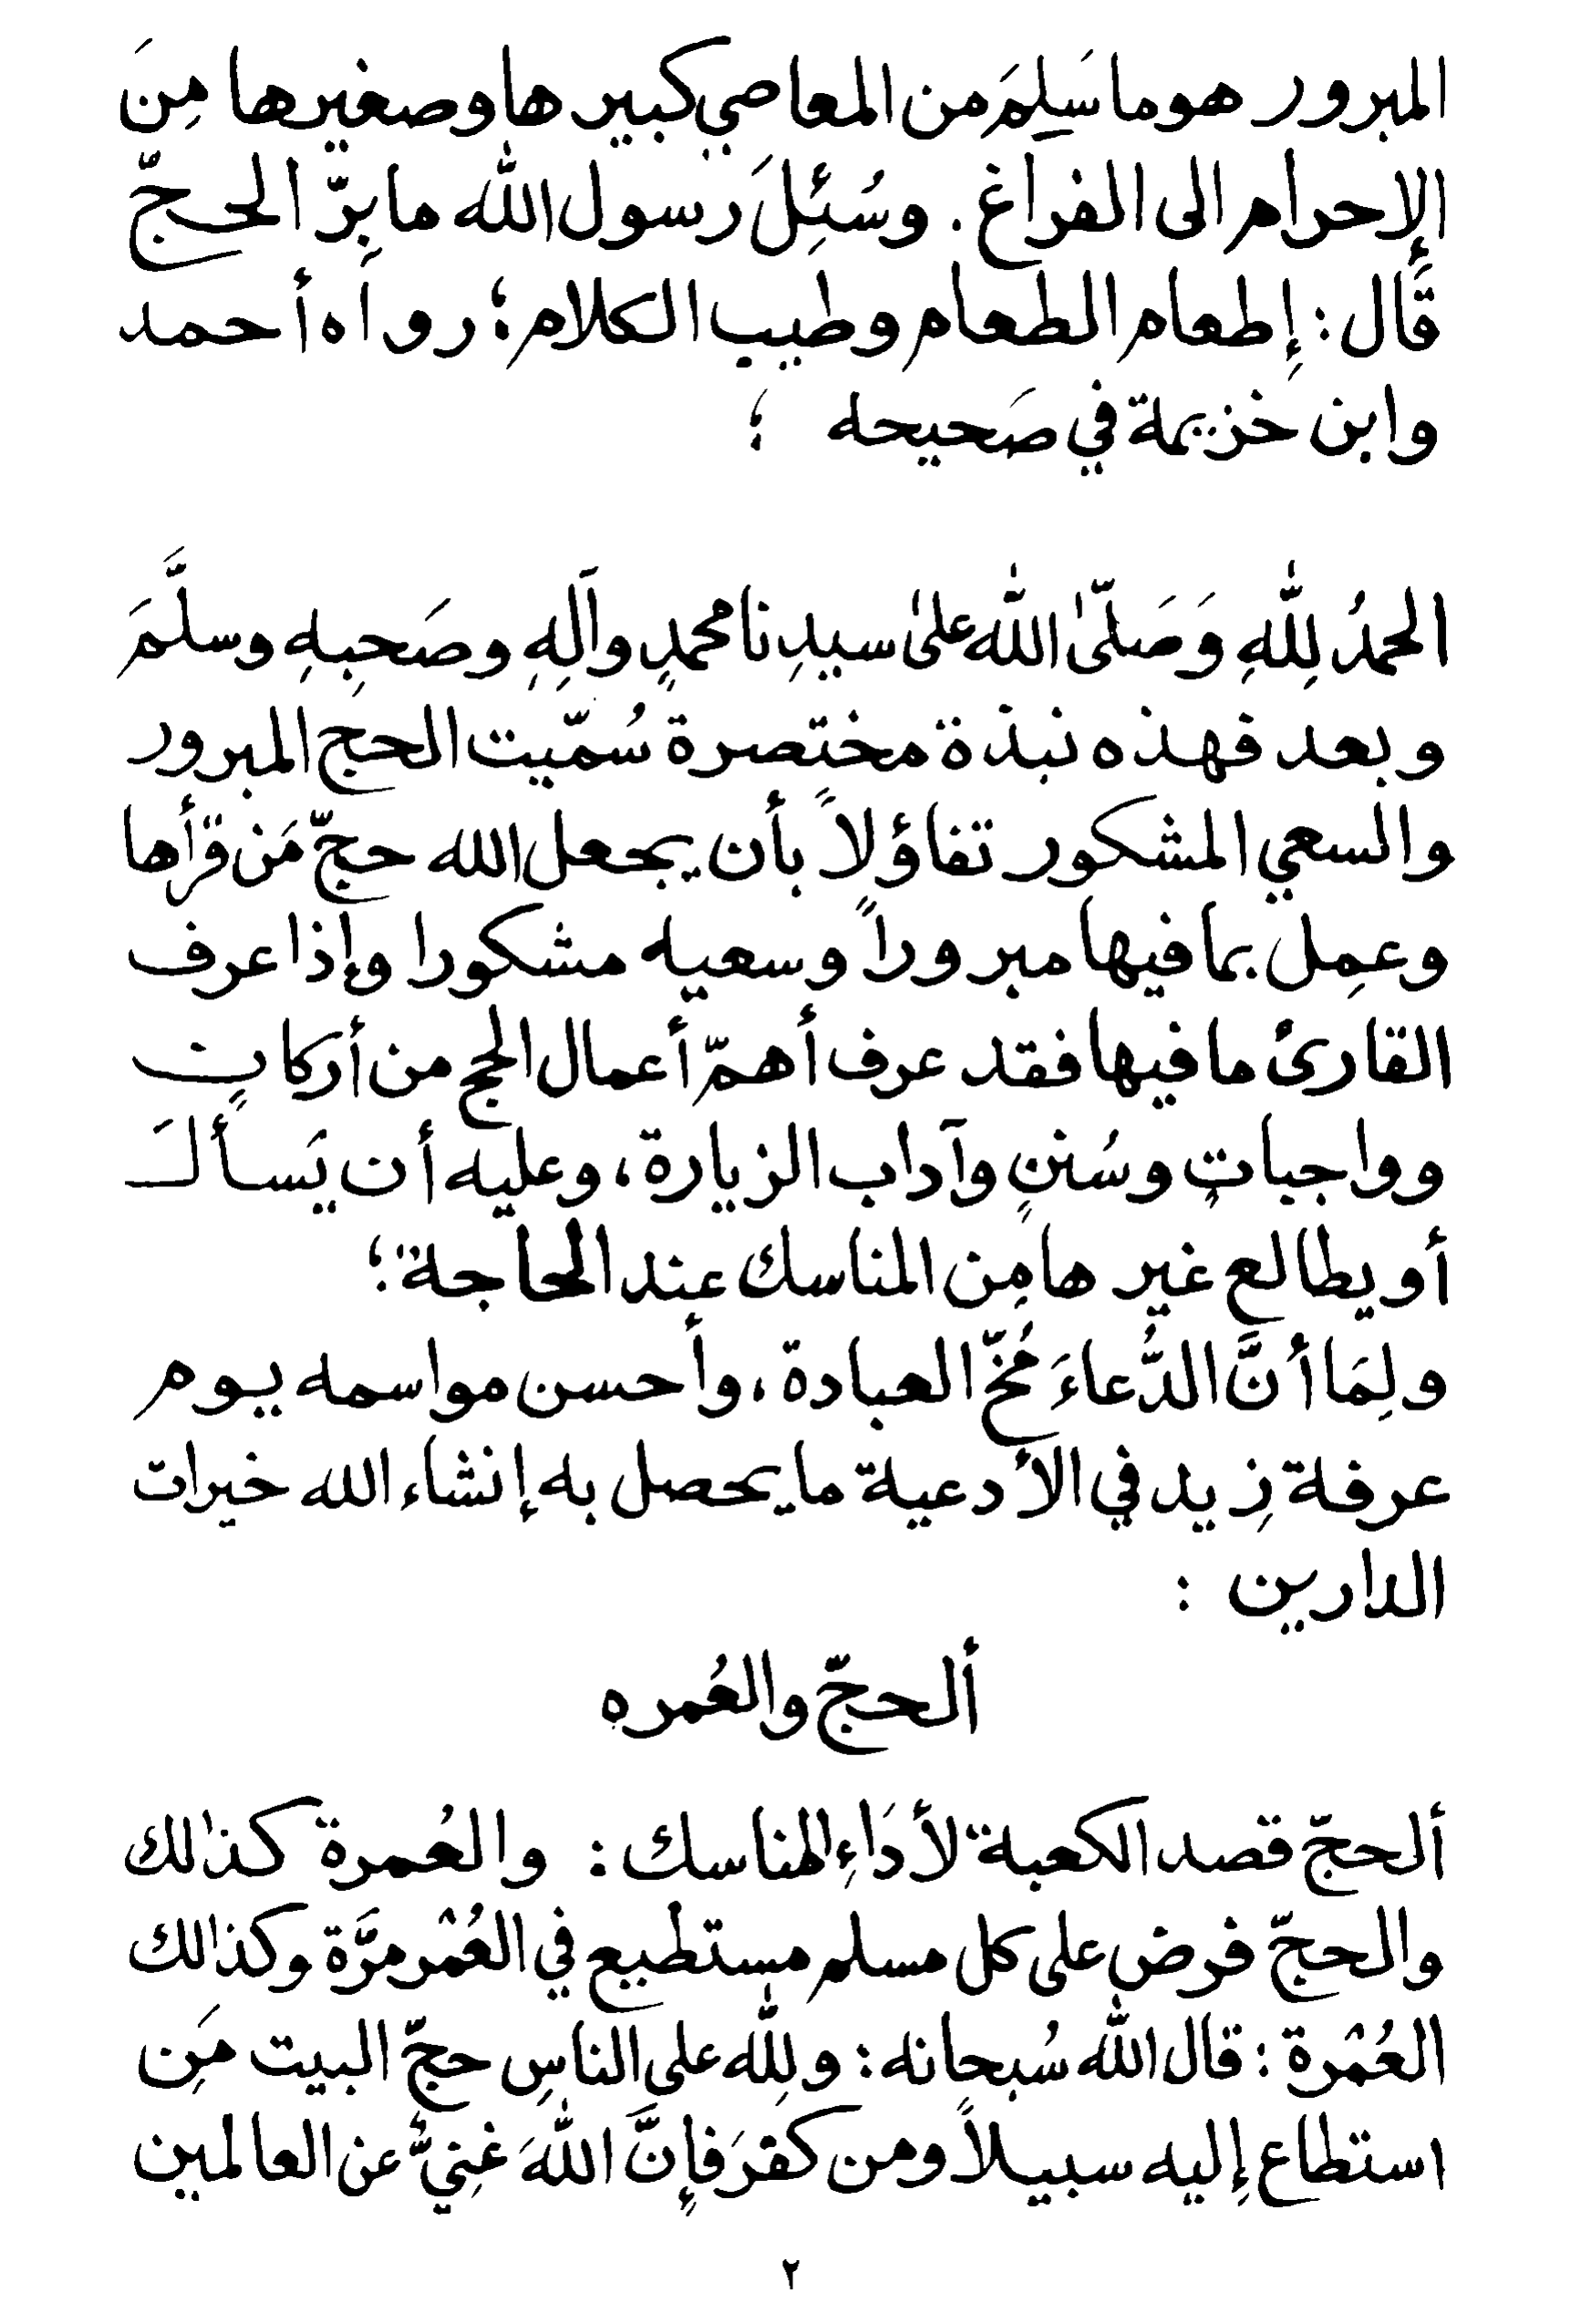 المبرور هو ما سَلِمَ من المعاصي كبيرها وصغيرها مِنَ
الإحرام الى الفراغ . وسُئِلَ رسول الله ما بِرّ الحجّ
قال : إطعام الطعام وطيب الكلام ؛ رواه أحمد
وابن خزيمة في صَحيحه ؛
الحمدُ لِلّٰهِ وَصَلّىٰ اللّٰه علىٰ سيدِنا محمدٍ وآلِهِ وصَحبِهِ وسلَّمَ
وبعد فهذه نبذة مختصرة سُمّيت الحج المبرور
والسعي المشكور تفاؤلاً بأن يجعل الله حجّ مَن قرأها
وعمِل بما فيها مبروراً وسعيه مشكورا وإذا عرف
القارئ ما فيها فقد عرف أهمّ أعمال الحج من أركانٍ
وواجباتٍ وسُننٍ وآداب الزيارة ، وعليه أن يَسألَ
أو يطالع غيرها مِن المناسك عند الحاجة ؛
ولِمَا أنَّ الدُّعاءَ مُخّ العبادة ، وأحسن مواسمه يوم
عرفة زِيد في الأدعية ما يحصل به إنشاء الله خيرات
الدارين :
ألحجّ والعُمره
ألحجّ قصد الكعبة لأدَاءِ المناسك : والعُمرة كذالك
والحجّ فرض على كل مسلم مستطيع في العُمْر مرَّة وكذالك
العُمْرة : قال اللّٰه سُبحانه : ولِلّٰه على الناسِ حجّ البيت مَنِ
استطاع إليه سبيلاً ومن كفرَ فإنَّ اللّٰهَ غنِيٌّ عن العالمين
٢